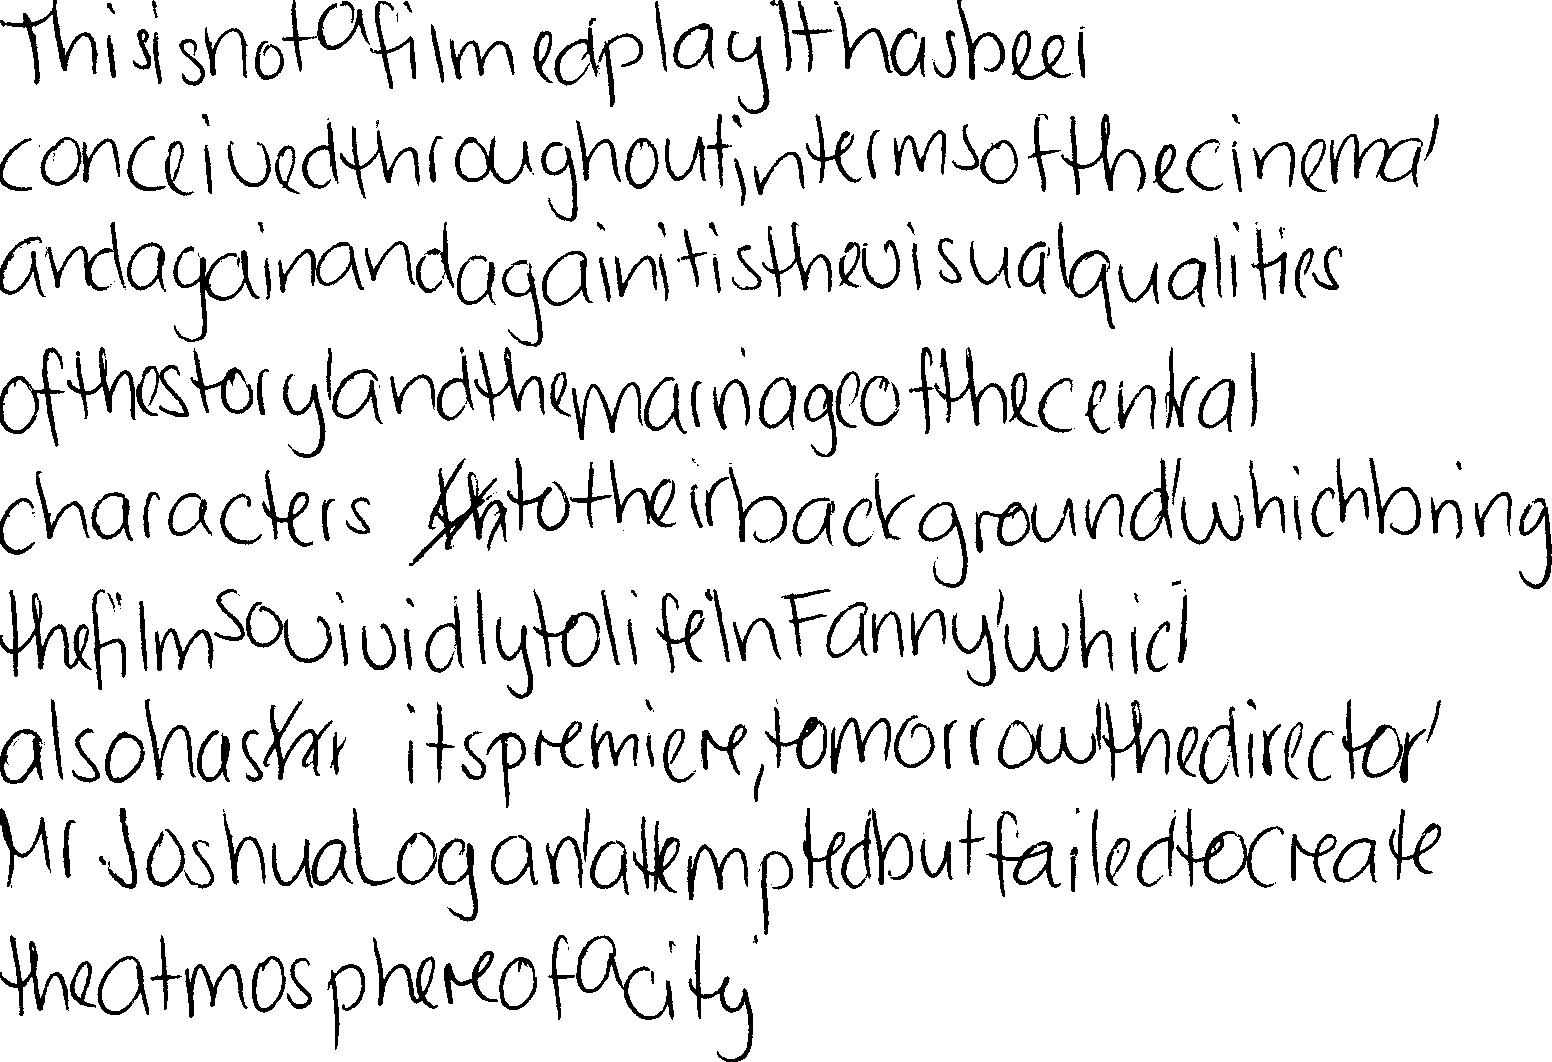 This is not a filmed play It has been
conceived throughout, in terms of the cinema,
and again and again it is the visual qualities
of the story, and the marriage of the central
characters to their background, which bring
the film so vividly to life. In Fanny, which
also has its premiere, tomorrow, the director,
Mr Joshua Logan, attempted but failed to create
the atmosphere of a city.